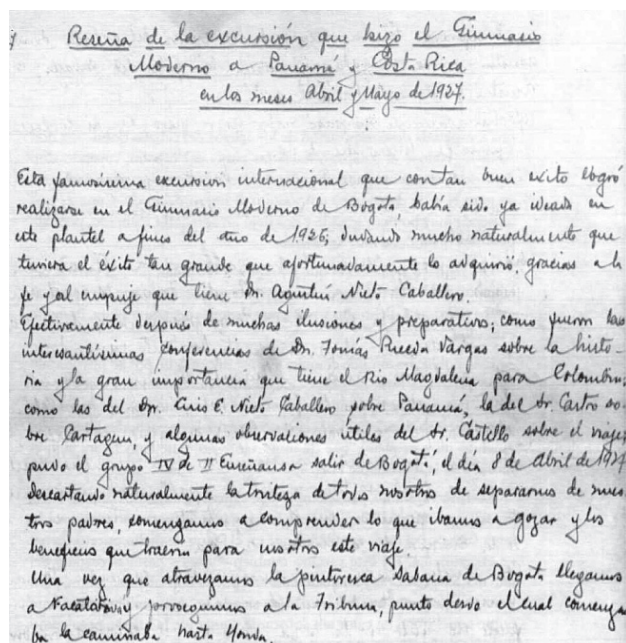 Reseña de la excursión que hizo el Gimnasio
Moderno a Panamá y Costa Rica
en los meses Abril y Mayo de 1927.
Esta famosísima excursion internacional que con tan buen exito logró
realizarse en el Gimnasio Moderno de Bogotá, había sido ya ideada en
este plantel a fines del año de 1926; dudando mucho naturalmente que
tuviera el éxito tan grande que afortunadamente lo adquirió, gracias a la
fe y al empuje que tiene Dn. Agustín Nieto Caballero.
Efectivamente después de muchas ilusiones y preparativos; como fueron las
interesantísimas conferencias de Dn. Tomás Rueda Vargas sobre la histo-
ria y la gran importancia que tiene el Rio Magdalena para Colombia;
como las del Dr. Luis E. Nieto Caballero sobre Panamá, la del Sr. Castro so-
bre Cartagena, y algunas observaciones útiles del Sr. Castello sobre el viaje;
pudo el grupo IV de II Enseñansa salir de Bogotá, el día 8 de Abril de 1927
Descartando naturalmente la tristeza de todos nosotros de separarnos de nues-
tros padres, comenzamos a comprender lo que ibamos a gozar y los
beneficios que traería para nosotros este viaje.
Una vez que atravezamos la pintoresca Sabana de Bogotá llegamos
a Facatativá y proseguimos a la Tribuna, punto desde el cual comenza
ba la caminata hasta Honda.